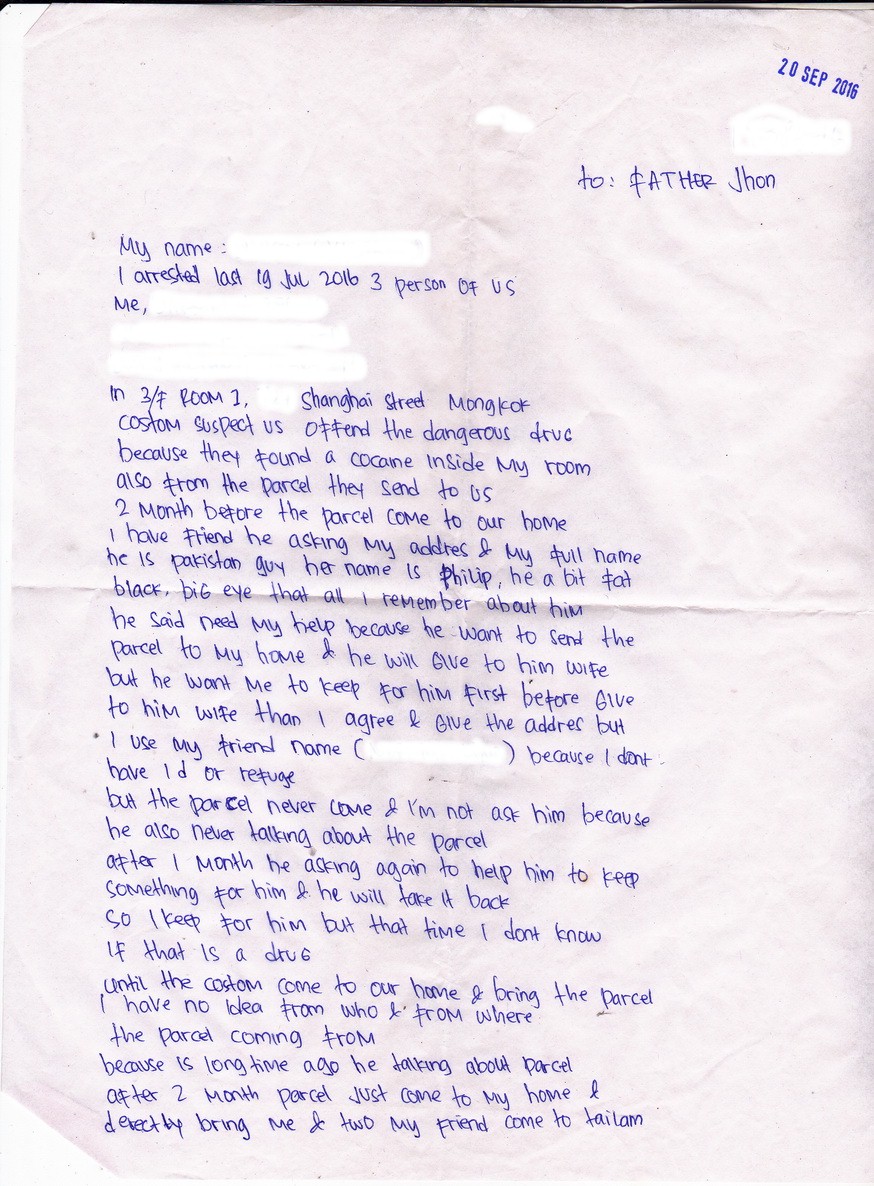 20 SEP 2016
to: FATHER Jhon
My name :
I arrested last 19 Jul 2016 3 person OF US
Me,
In 3/F ROOM 1, Shanghai Street Mongkok
costom suspect us offend the dangerous drug
because they found a cocaine inside My room
also from the parcel they send to us
2 Month before the parcel come to our home
I have friend he asking My addres & My full name
he is pakistan guy her name is Philip, he a bit fat
black, big eye that all I remember about him
he said need My help because he want to send the
parcel to My home & he will Give to him wife
but he want Me to keep for him first before Give
to him wife than I agree & Give the addres but
I use My friend name ( ) because I dont
have Id or refuge
but the parcel never come & I'm not ask him because
he also never talking about the parcel
after 1 Month he asking again to help him to keep
something for him & he will take it back
so I keep for him but that time I dont know
if that is a drug
until the costom come to our home & bring the parcel
I have no idea from who & from where
the parcel coming from
because is longtime ago he talking about parcel
after 2 Month parcel just come to My home &
derectly bring Me & two My friend come to tailam